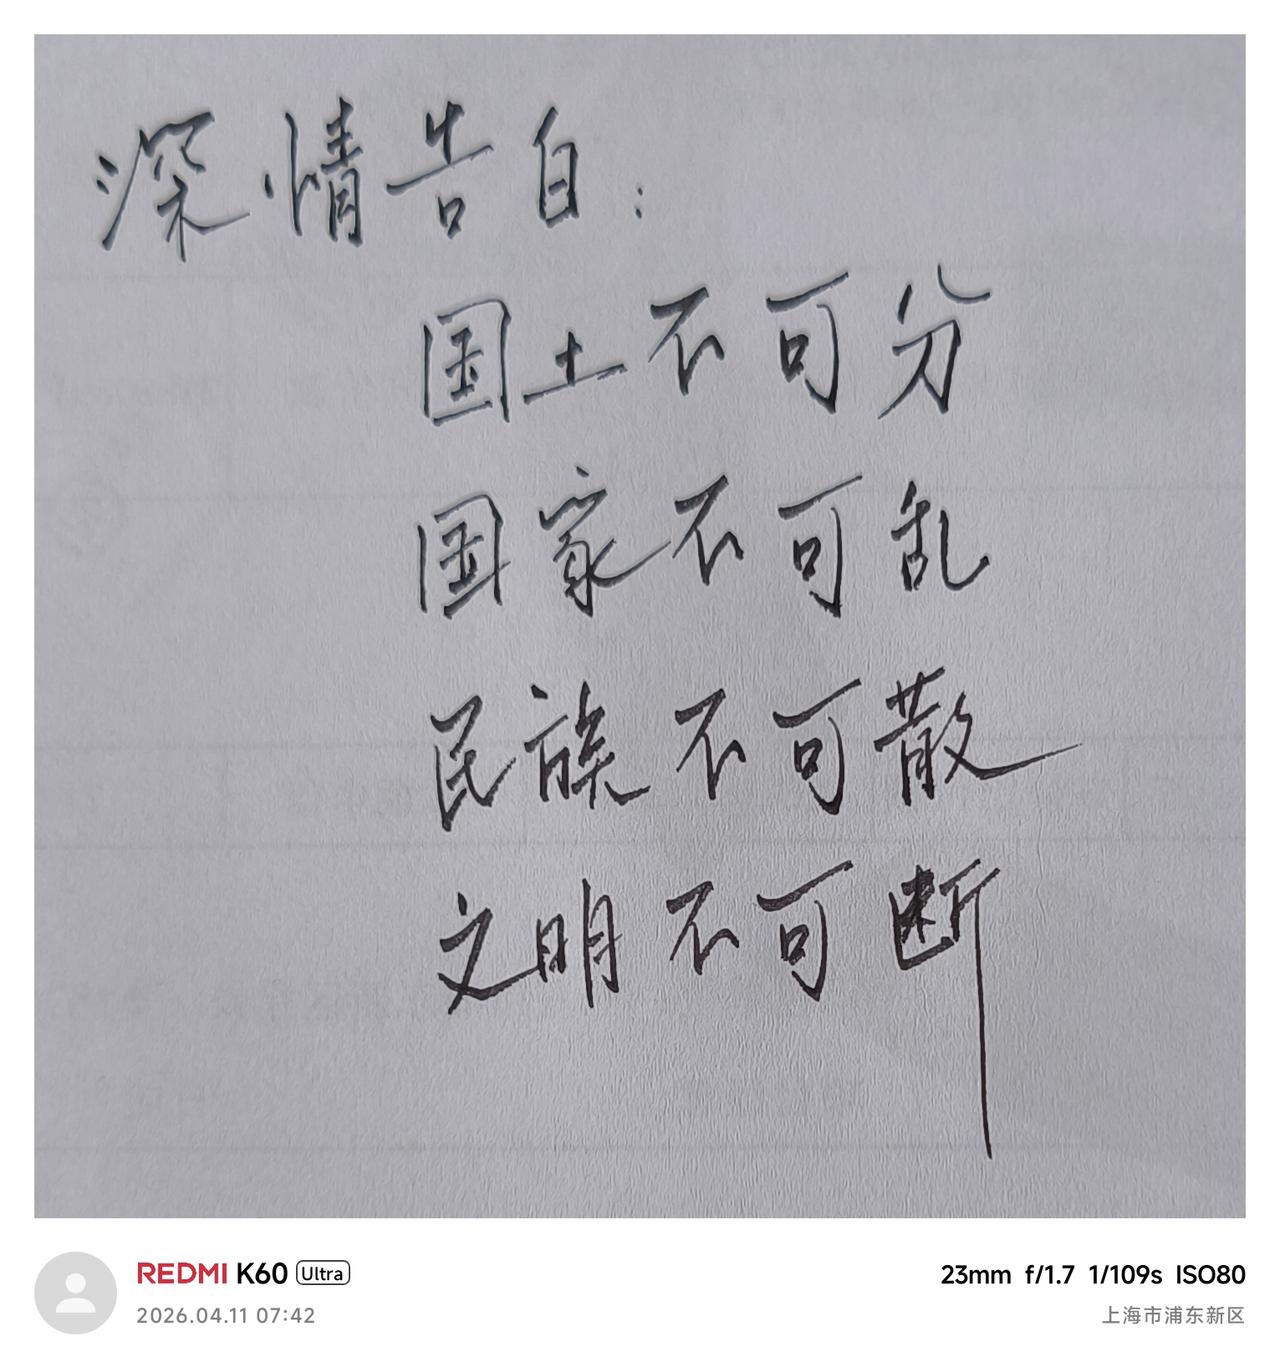 深情告白：
国土不可分
国家不可乱
民族不可散
文明不可断
REDMI K60 Ultra
2026.04.11 07:42
23mm f/1.7 1/109s ISO80
上海市浦东新区